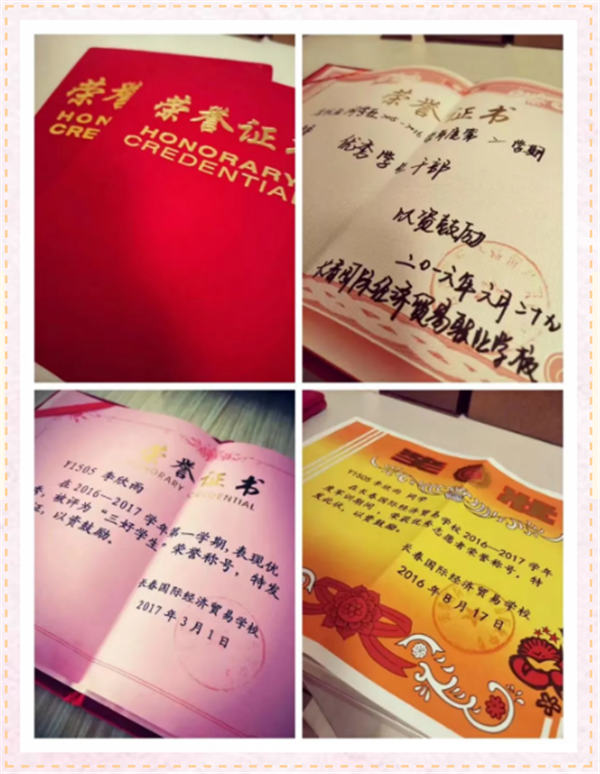 荣誉
HON
CRE
荣誉证
HONORARY
CREDENTIA
荣誉证书
学年度第二学期
优秀学生干部
以资鼓励
二〇一六年六月二十九
国际经济贸易职业学校
荣誉证书
HONORARY CREDENTIAL
Y1505 李欣雨
在2016—2017学年第一学期，表现优
秀，被评为“三好学生”荣誉称号，特发
证，以资鼓励。
长春国际经济贸易学校
2017年3月1日
Y1505 李欣雨 同学
在长春国际经济贸易学校2016—2017学年
期间，荣获优秀志愿者荣誉称号，特
发此状，以资鼓励。
长春国际经济贸易学校
2016年8月17日